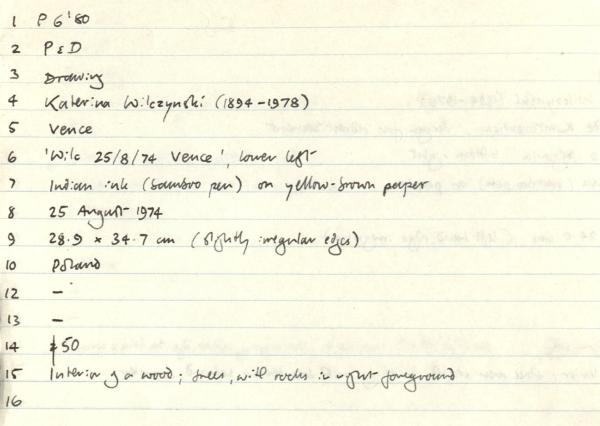 1 P 6 '80
2 P & D
3 Drawing
4 Katerina Wilczynski (1894-1978)
5 Vence
6 'Wilc 25/8/74 Vence', lower left
7 Indian ink (bamboo pen) on yellow-brown paper
8 25 August 1974
9 28.9 x 34.7 cm (slightly irregular edges)
10 Poland
12 -
13 -
14 £50
15 Interior of a wood; trees, with rocks in right foreground
16